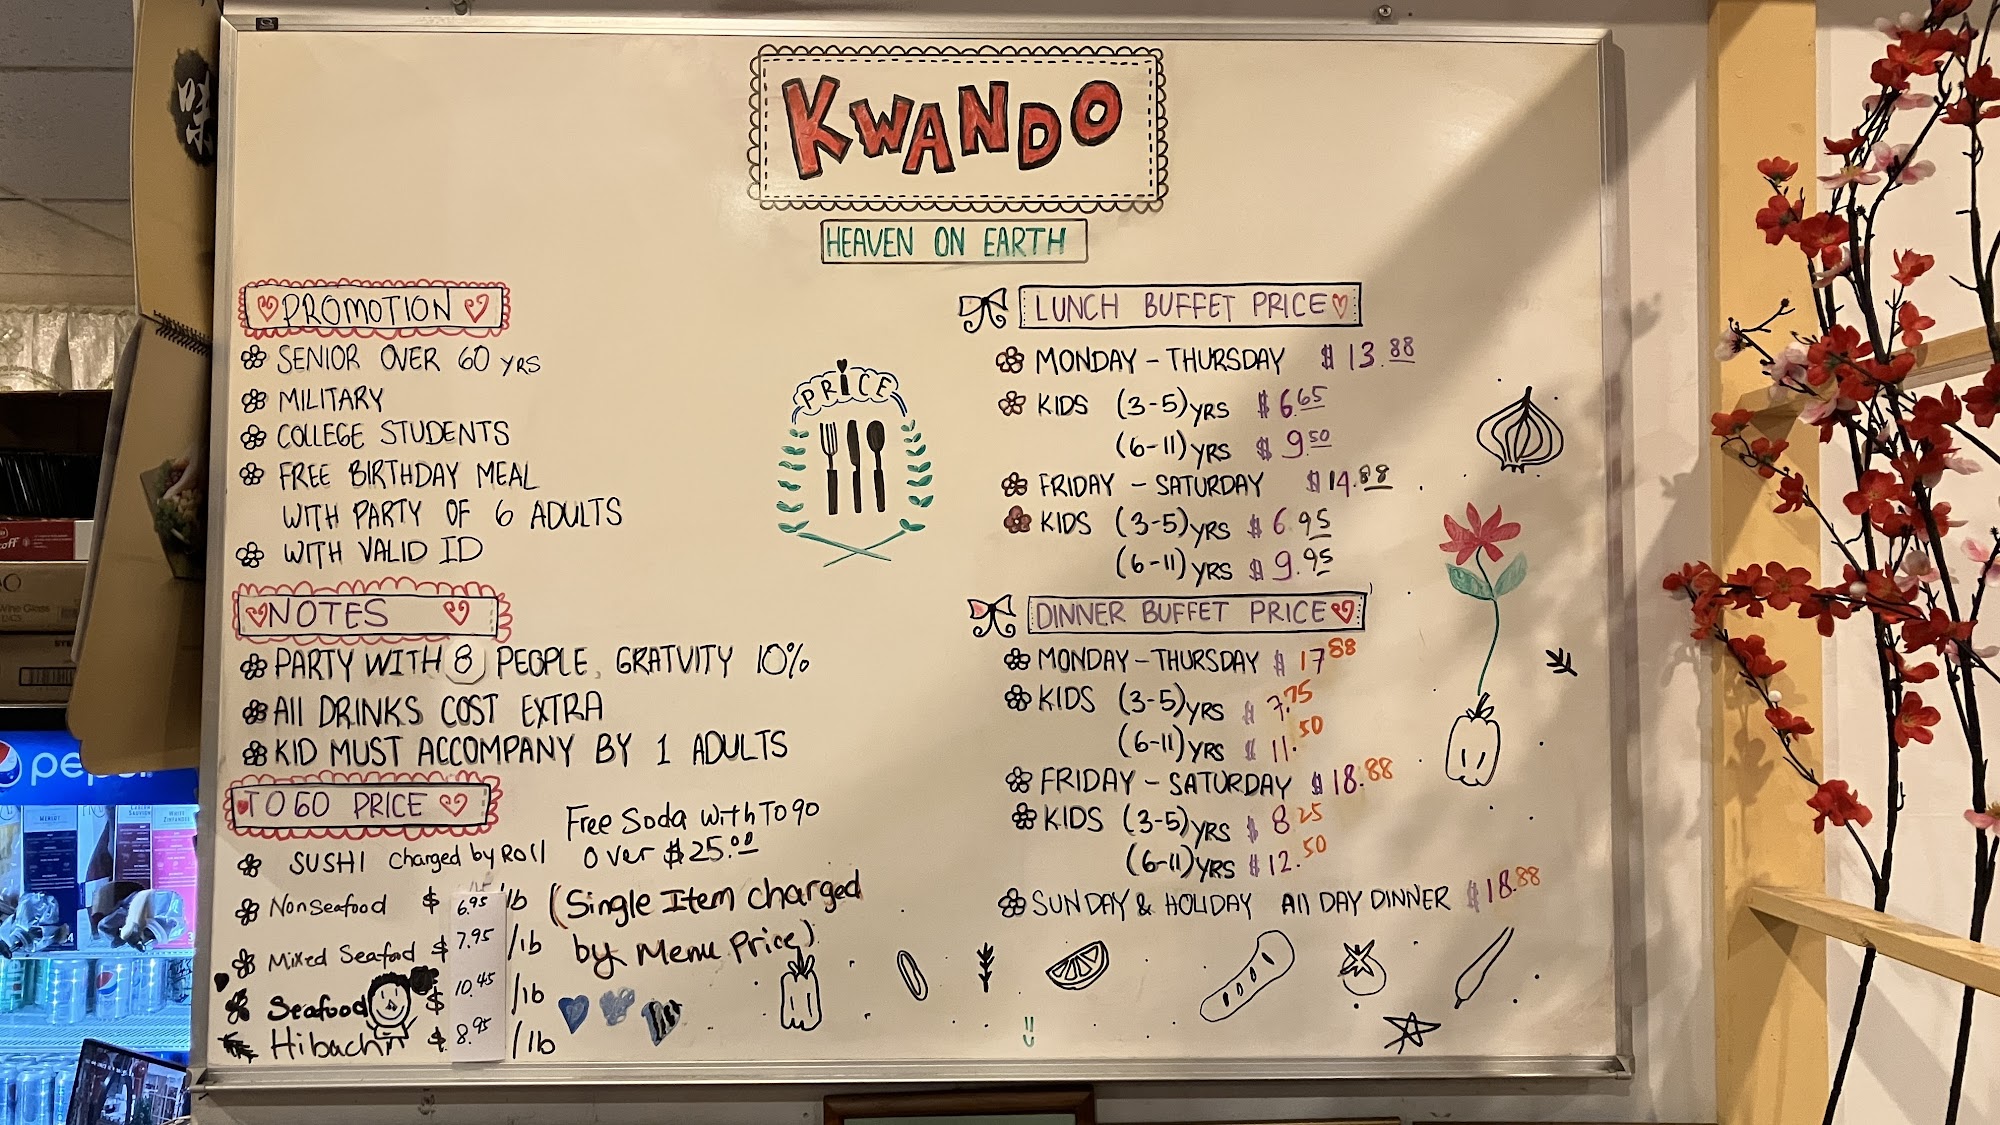 KWANDO
HEAVEN ON EARTH
PROMOTION
SENIOR OVER 60 YRS
MILITARY
COLLEGE STUDENTS
FREE BIRTHDAY MEAL
WITH PARTY OF 6 ADULTS
WITH VALID ID
NOTES
PARTY WITH 8 PEOPLE, GRATVITY 10%
All DRINKS COST EXTRA
KID MUST ACCOMPANY BY 1 ADULTS
TO GO PRICE
Free Soda with To go
over $25.00
SUSHI Charged by Roll
NonSeafood $ 6.95 /lb
Mixed Seafood $ 7.95 /lb
Seafood $ 10.45 /lb
Hibachi $ 8.95 /lb
(Single Item charged
by Menu Price)
PRICE
LUNCH BUFFET PRICE
MONDAY - THURSDAY $ 13.88
KIDS (3-5) YRS $ 6.65
(6-11) YRS $ 9.50
FRIDAY - SATURDAY $ 14.88
KIDS (3-5) YRS $ 6.95
(6-11) YRS $ 9.95
DINNER BUFFET PRICE
MONDAY - THURSDAY $ 17.88
KIDS (3-5) YRS $ 7.75
(6-11) YRS $ 11.50
FRIDAY - SATURDAY $ 18.88
KIDS (3-5) YRS $ 8.25
(6-11) YRS $ 12.50
SUNDAY & HOLIDAY All DAY DINNER $ 18.88
pepsi
MERLOT